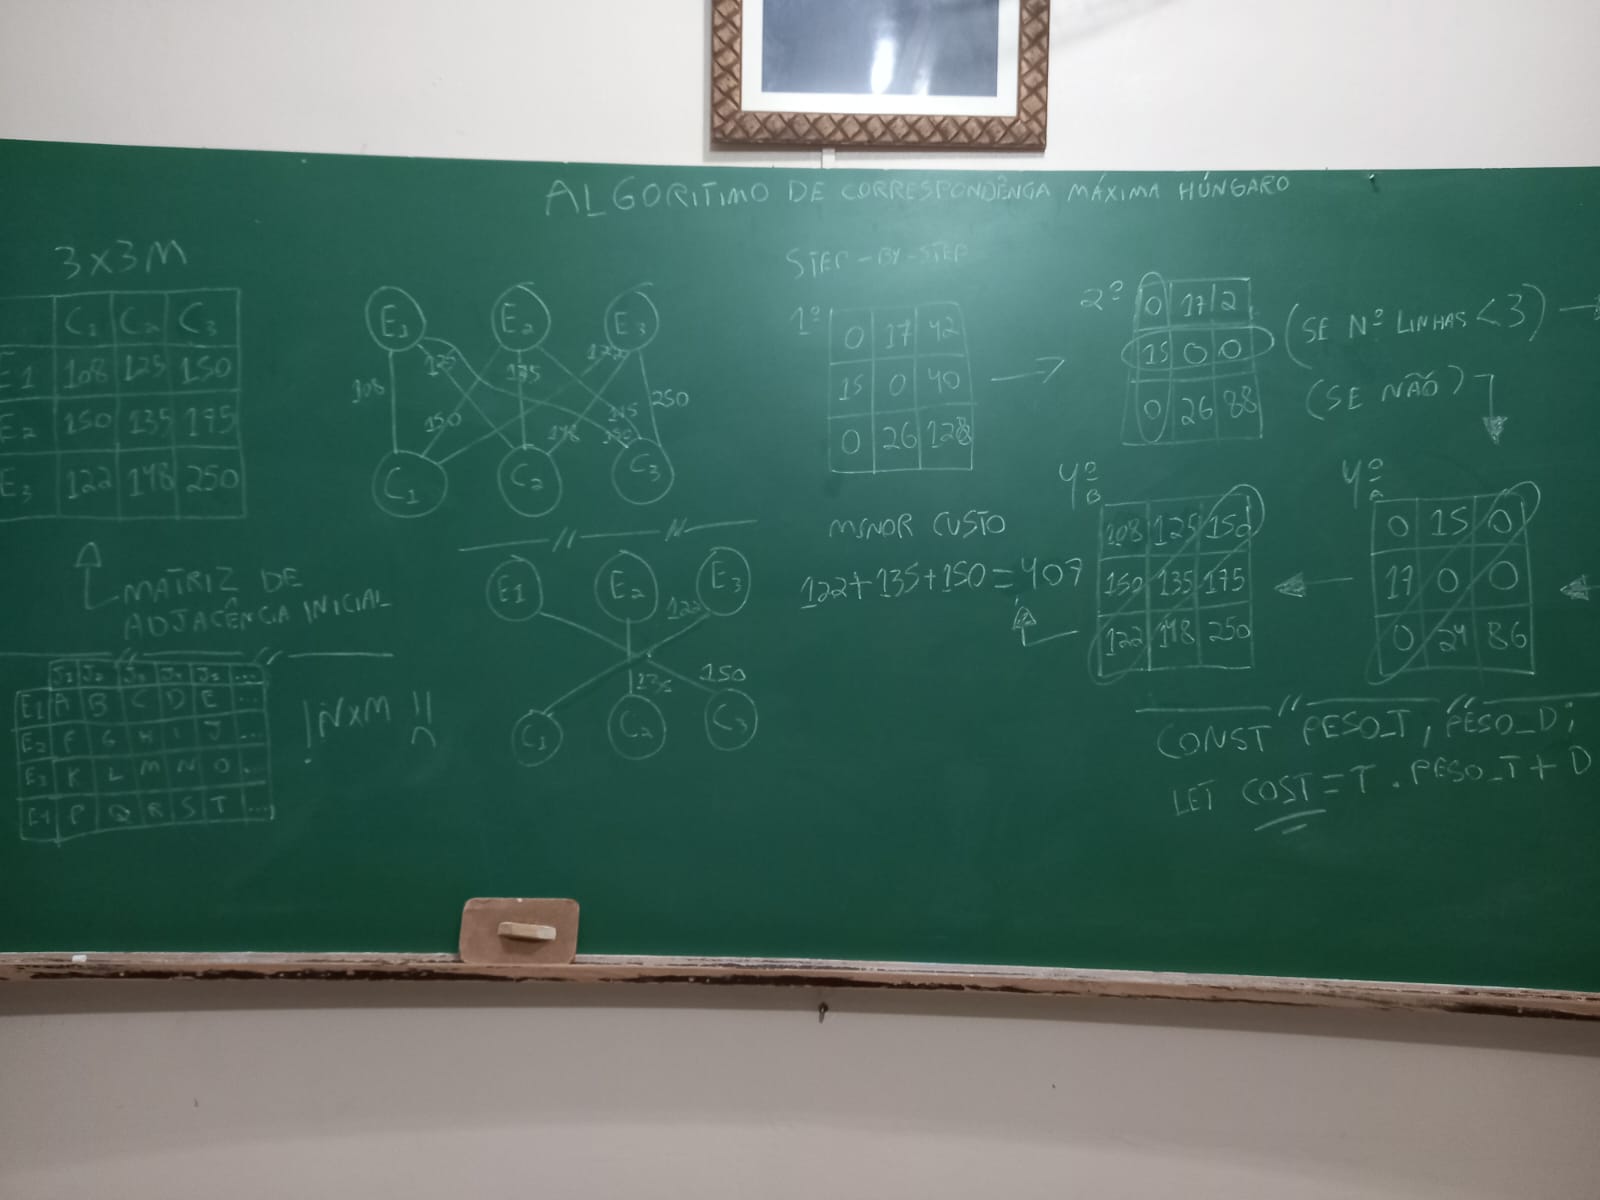 ALGORITIMO DE CORRESPONDÊNÇA MÁXIMA HÚNGARO
3x3M
C1 C2 C3
E1 108 125 150
E2 150 135 175
E3 122 148 250
MATRIZ DE
ADJACÊNCIA INICIAL
J1 J2 J3 J4 J5 ...
E1 A B C D E ...
E2 F G H I J ...
E3 K L M N O ...
E4 P Q R S T ...
! NxM !!
E1 E2 E3
108 125 135 122
150 148 250
C1 C2 C3
E1 E2 E3
122
135 150
C1 C2 C3
STEP-BY-STEP
1º
0 17 42
15 0 40
0 26 128
2º
0 17 2
15 0 0
0 26 88
(SE Nº LINHAS < 3)
(SE NÃO)
4º A
0 15 0
17 0 0
0 24 86
4º B
108 125 150
150 135 175
122 148 250
MENOR CUSTO
122+135+150=407
CONST PESO_T, PESO_D;
LET COST = T . PESO_T + D